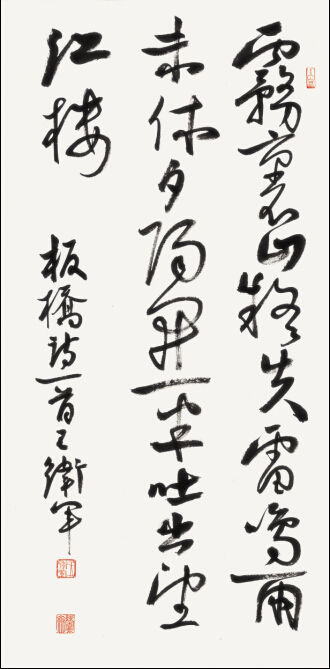 霧裹山疑失雷鳴雨
未休夕陽開一半吐出望
江樓
板橋詩一首王衛軍